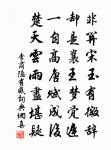 非關宋玉有微辭
卻是襄王夢覺遲
一自高唐賦成後
楚天雲雨盡堪疑
李商隱有感